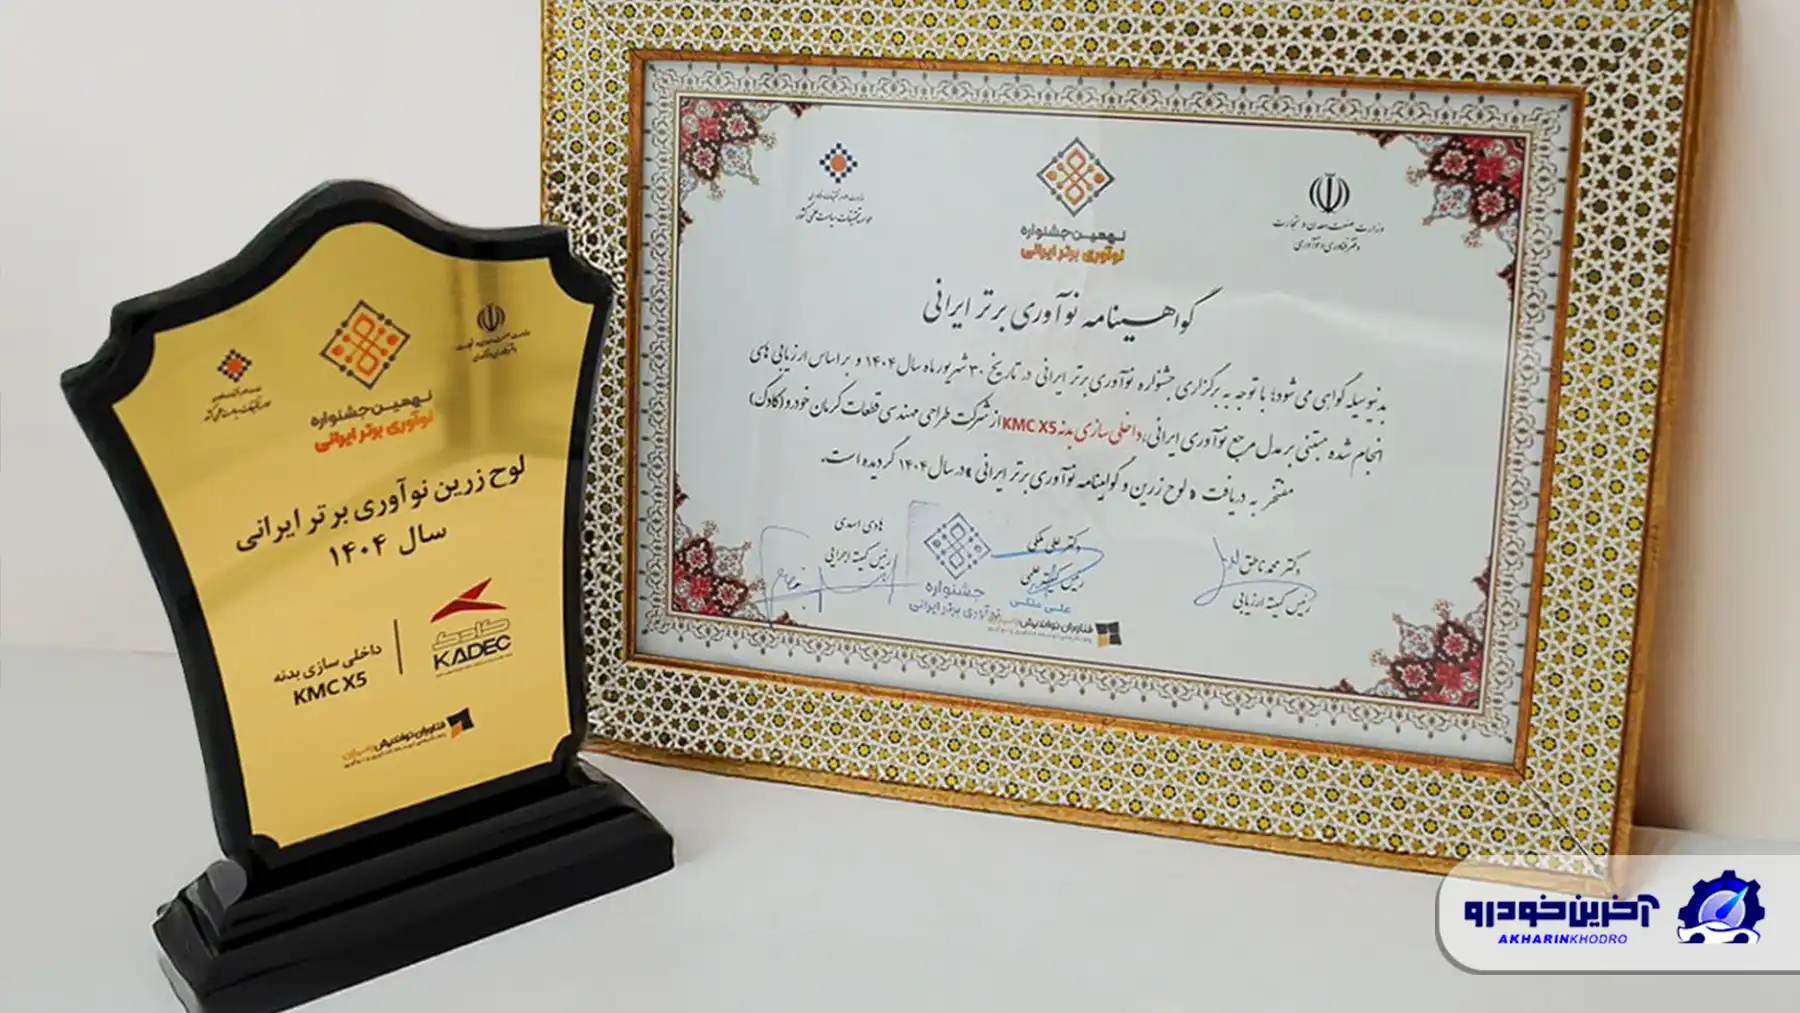 نهمین جشنواره
نوآوری برتر ایرانی
لوح زرین نوآوری برتر ایرانی
سال ۱۴۰۴
کادک
KADEC
داخلی سازی بدنه
KMC X5
فناوران نواندیش
وزارت صنعت، معدن و تجارت
دفتر فناوری و نوآوری
نهمین جشنواره
نوآوری برتر ایرانی
مؤسسه تحقیقات سیاست علمی کشور
گواهینامه نوآوری برتر ایرانی
بدینوسیله گواهی می شود؛ با توجه به برگزاری جشنواره نوآوری برتر ایرانی در تاریخ ۳۰ شهریور ماه سال ۱۴۰۴ و بر اساس ارزیابی های
انجام شده مبتنی بر مدل مرجع نوآوری ایرانی، داخلی سازی بدنه KMC X5 از شرکت طراحی مهندسی قطعات کرمان خودرو (کادک)
مفتخر به دریافت «لوح زرین و گواهینامه نوآوری برتر ایرانی» در سال ۱۴۰۴ گردیده است.
دکتر محمد ناطق
رئیس کمیته ارزیابی
دکتر علی ملکی
رئیس کمیته علمی
علی ملکی
هادی اسدی
رئیس کمیته اجرایی
جشنواره
نوآوری برتر ایرانی
فناوران نواندیش
آخرین خودرو
AKHARINKHODRO